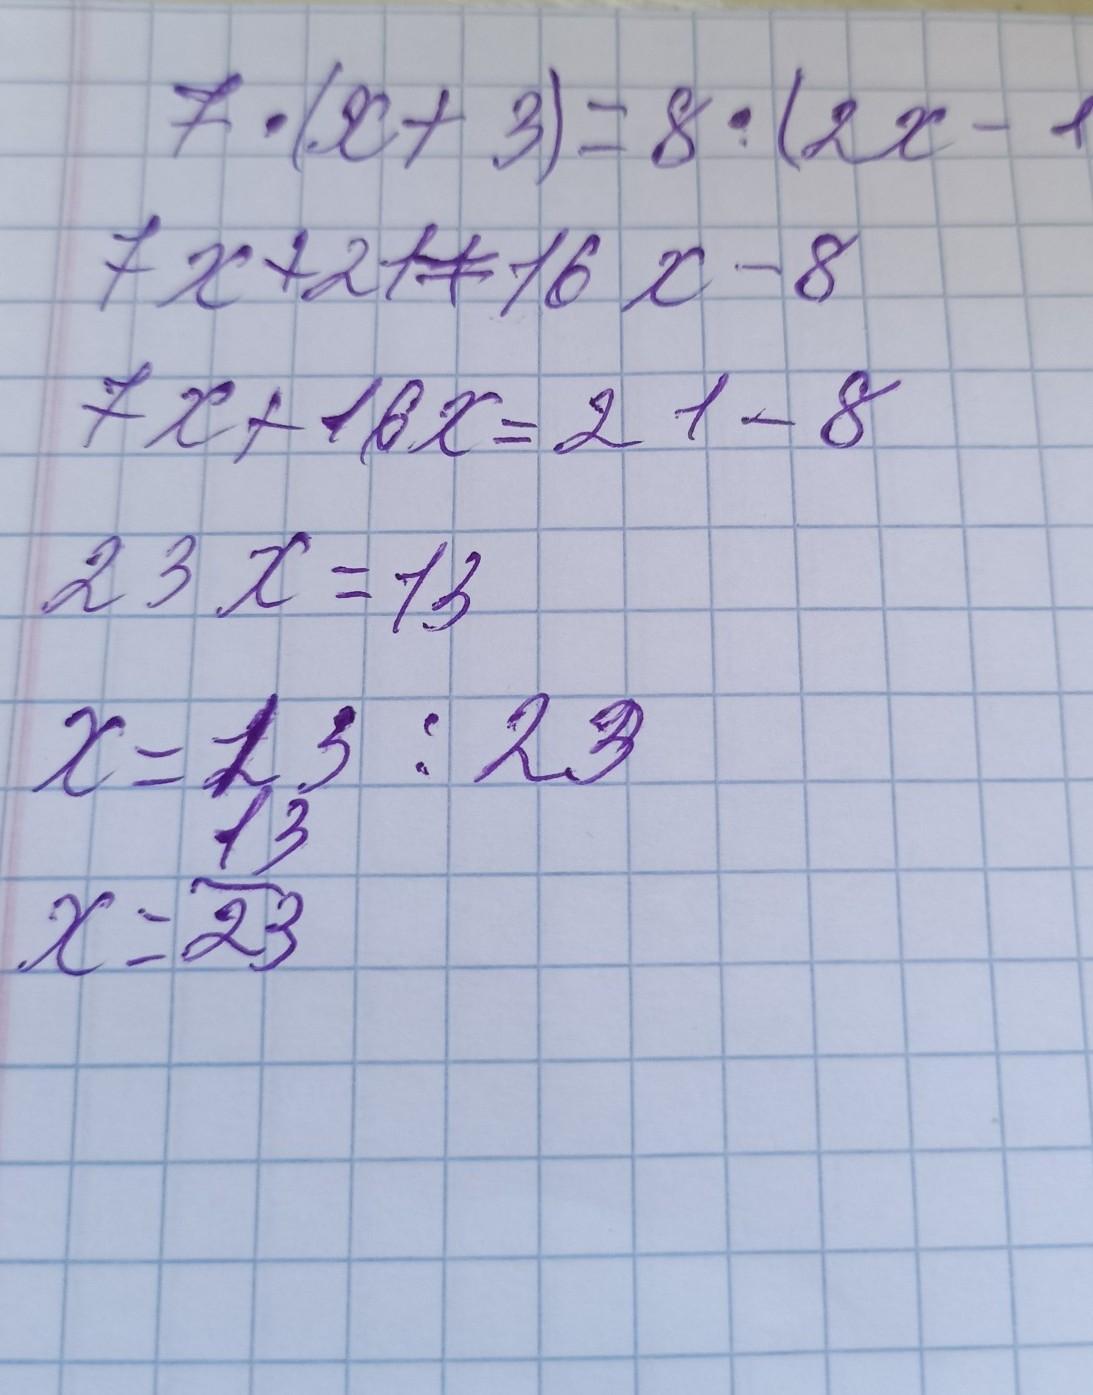 7·(x+3)=8·(2x-1
7x+21=16x-8
7x+16x=21-8
23x=13
x=13:23
13
x=23